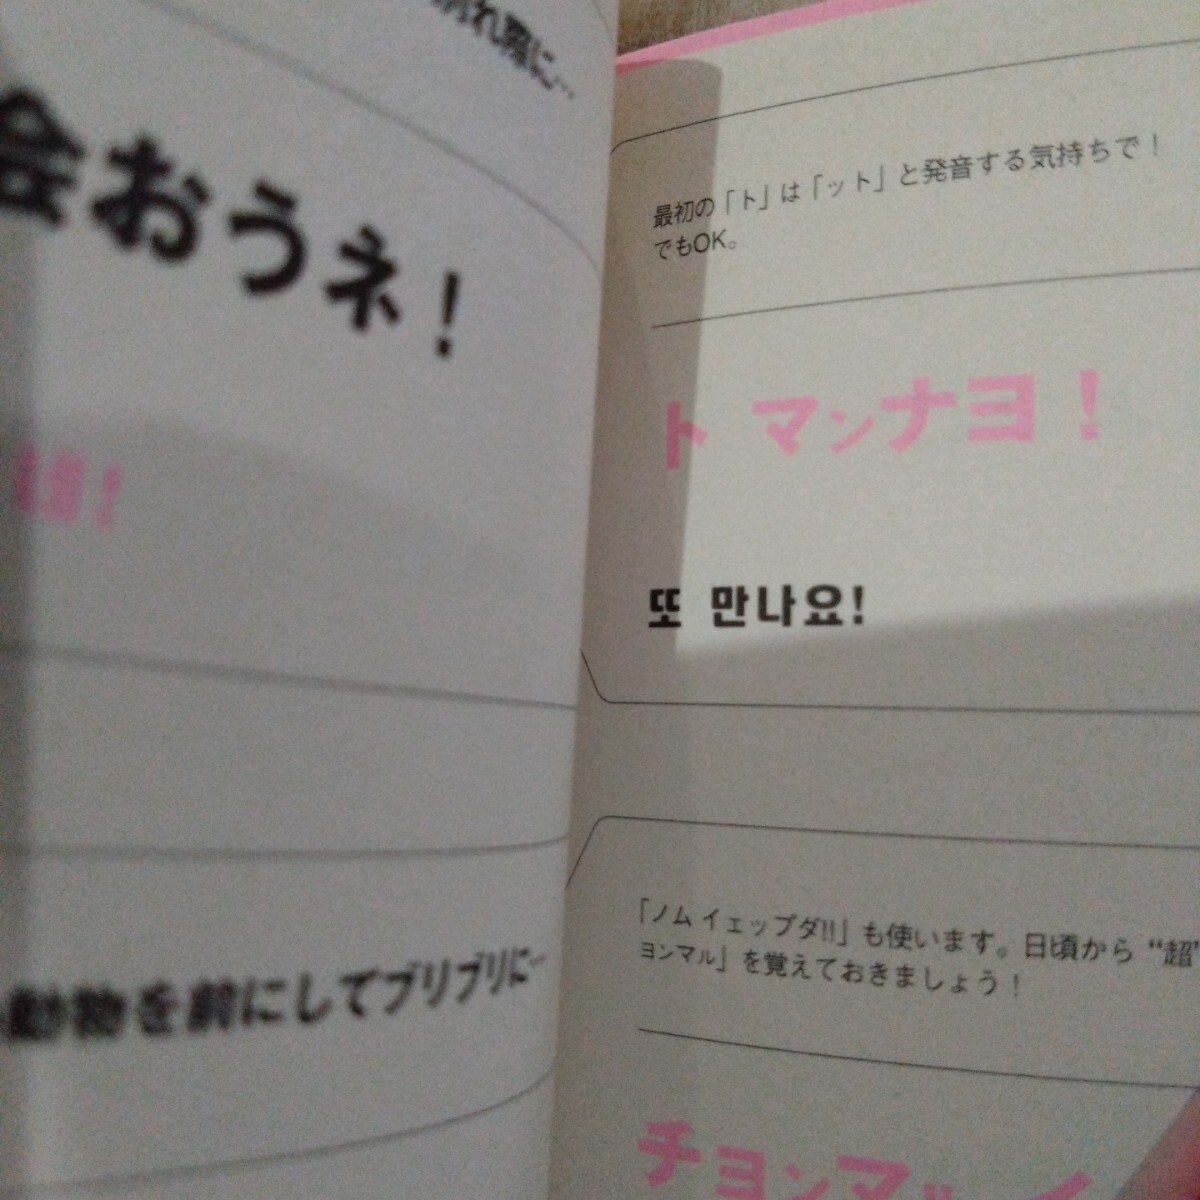 別れ際に…
会おうネ！
動物を前にしてブリブリに…
最初の「ト」は「ット」と発音する気持ちで！
でもOK。
ト マンナヨ！
또 만나요!
「ノム イェップダ!!」も使います。日頃から “超”
ヨンマル」を覚えておきましょう！
チョンマル